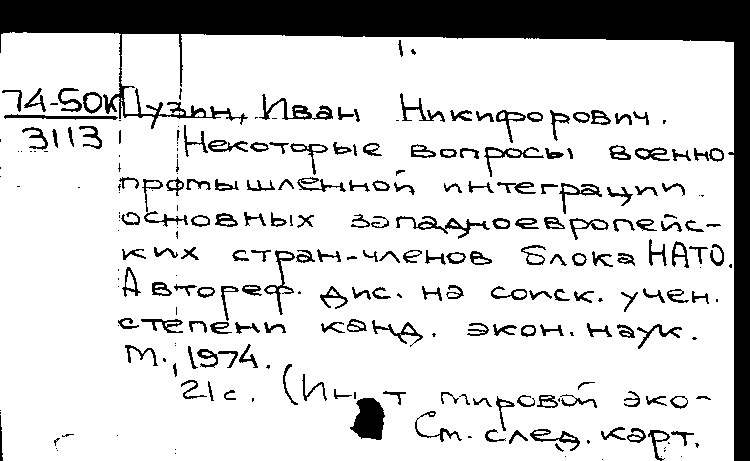 1.
74-50К Пузин, Иван Никифорович.
3113 Некоторые вопросы военно-
промышленной интеграции
основных западноевропейс-
ких стран-членов блока НАТО.
Автореф. дис. на соиск. учен.
степени канд. экон. наук.
М., 1974.
21 с. (Ин-т мировой эко-
См. след. карт.